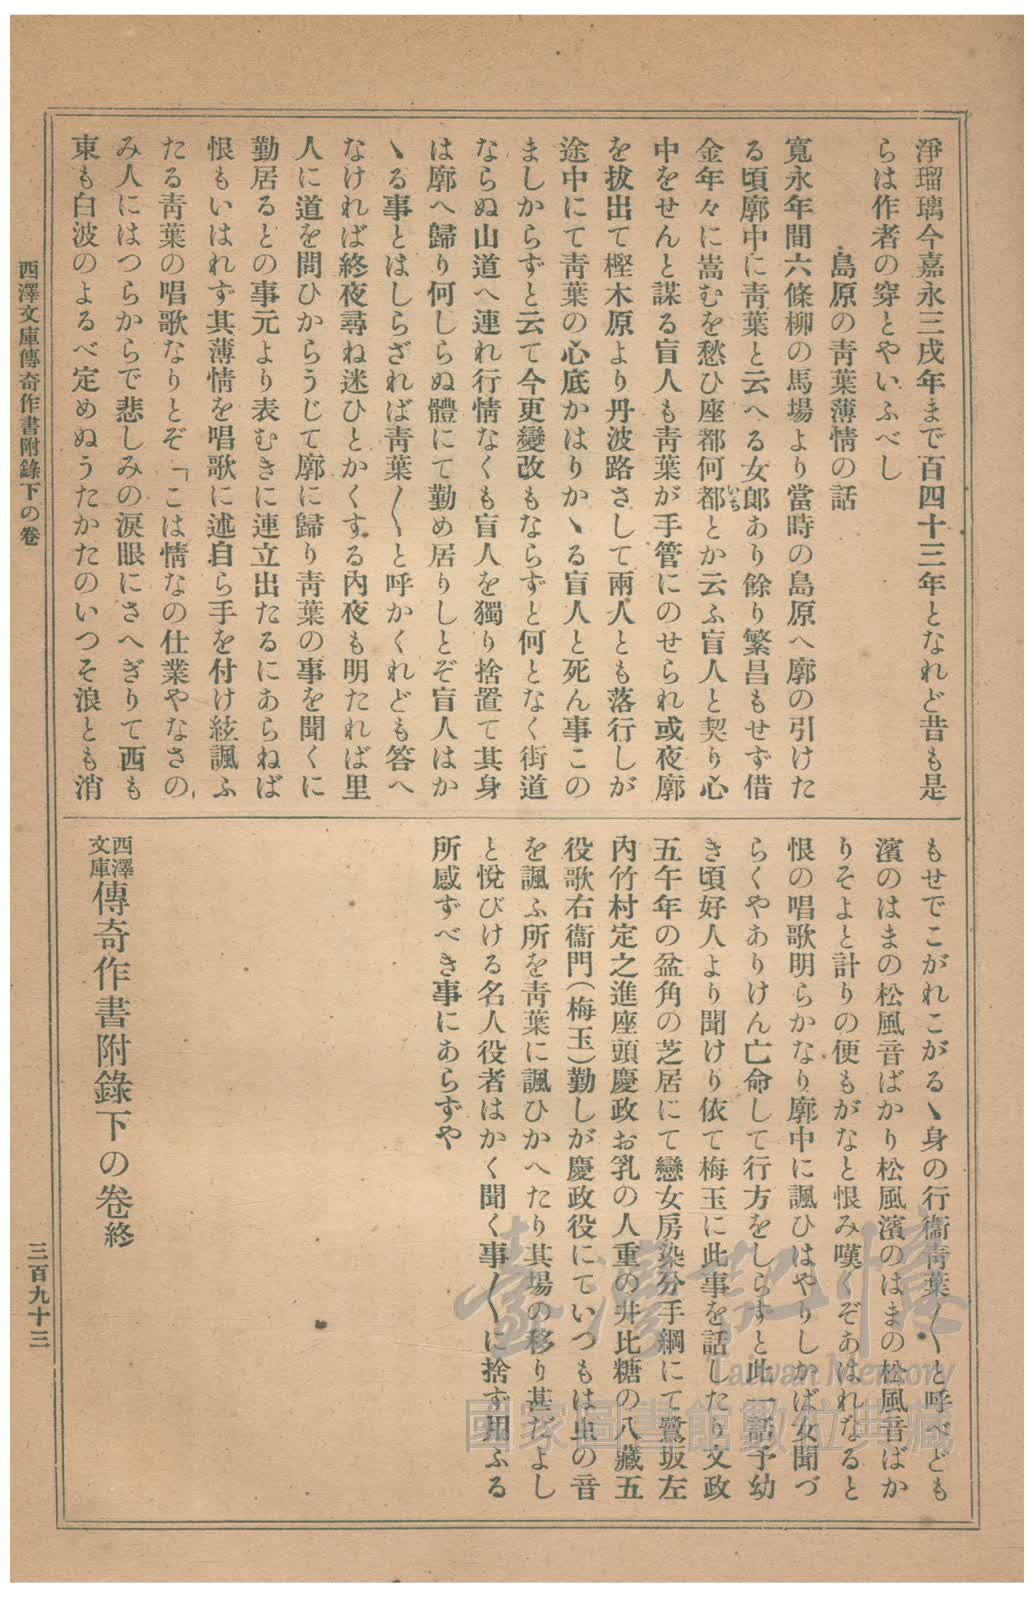 淨瑠璃今嘉永三戌年まで百四十三年となれど昔も是
らは作者の穿とやいふべし
島原の靑葉薄情の話
寬永年間六條柳の馬場より當時の島原へ廓の引けた
る頃廓中に靑葉と云へる女郎あり餘り繁昌もせず借
金年々に嵩むを愁ひ座都何都とか云ふ盲人と契り心
いち
中をせんと謀る盲人も靑葉が手管にのせられ或夜廓
を拔出て樫木原より丹波路さして兩人とも落行しが
途中にて靑葉の心底かはりかヽる盲人と死ん事この
ましからずと云て今更變改もならずと何となく街道
ならぬ山道へ連れ行情なくも盲人を獨り捨置て其身
は廓へ歸り何しらぬ體にて勤め居りしとぞ盲人はか
ヽる事とはしらざれば靑葉〳〵と呼かくれども答へ
なければ終夜尋ね迷ひとかくする內夜も明たれば里
人に道を問ひからうじて廓に歸り靑葉の事を聞くに
勤居るとの事元より表むきに連立出たるにあらねば
恨もいはれず其薄情を唱歌に述自ら手を付け絃諷ふ
たる靑葉の唱歌なりとぞ「こは情なの仕業やなさの
み人にはつらからで悲しみの淚眼にさへぎりて西も
東も白波のよるべ定めぬうたかたのいつそ浪とも消
もせでこがれこがるヽ身の行衞靑葉〳〵と呼べども
濱のはまの松風音ばかり松風濱のはまの松風音ばか
りそよと計りの便もがなと恨み嘆くぞあはれなると
恨の唱歌明らかなり廓中に諷ひはやりしかば女聞づ
らくやありけん亡命して行方をしらずと此一話予幼
き頃好人より聞けり依て梅玉に此事を話したり文政
五午年の盆角の芝居にて戀女房染分手綱にて鷺坂左
內竹村定之進座頭慶政お乳の人重の井比糖の八藏五
役歌右衞門(梅玉)勤しが慶政役にていつもは虫の音
を諷ふ所を靑葉に諷ひかへたり其場の移り甚だよし
と悅びける名人役者はかく聞く事〳〵に捨ず用ふる
所感ずべき事にあらずや
西澤文庫傳奇作書附錄下の卷終
西澤文庫傳奇作書附錄下の卷
三百九十三
臺灣記憶
Taiwan Memory
國家圖書館數位典藏